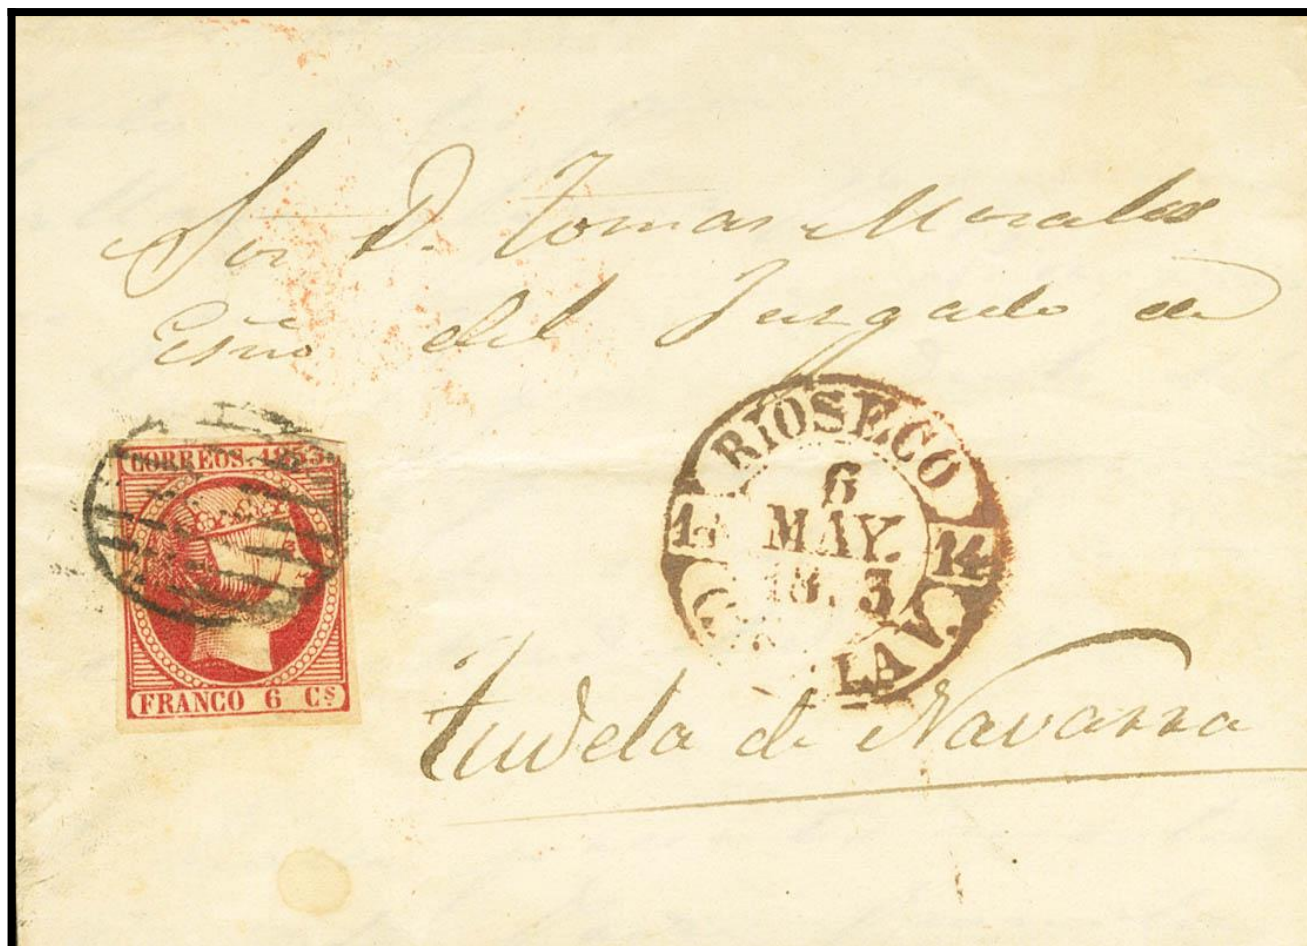 Sor D. Tomas Morales
Esño del Juzgado de
CORREOS 1853
FRANCO 6 Cs
RIOSECO
6
MAY.
14
LA V.
Tudela de Navarra